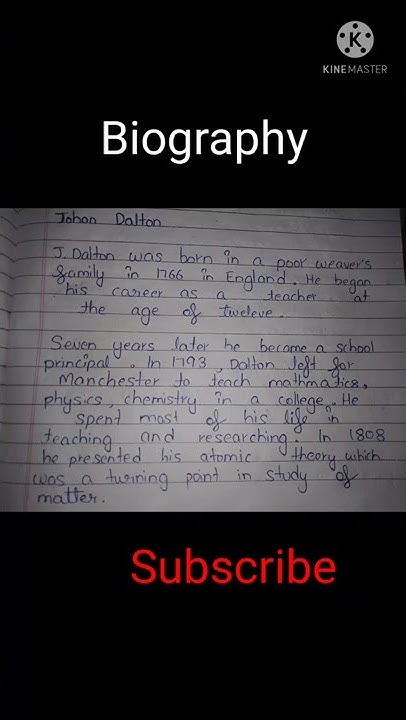 KINEMASTER
Biography
Johon Dalton
J. Dalton was born in a poor weaver's
family in 1766 in England. He began
his career as a teacher at
the age of tweleve.
Seven years later he become a school
principal. In 1793, Dalton left for
Manchester to teach mathmatics,
physics, chemistry in a college. He
spent most of his life in
teaching and researching. In 1808
he presented his atomic theory which
was a turning point in study of
matter.
Subscribe